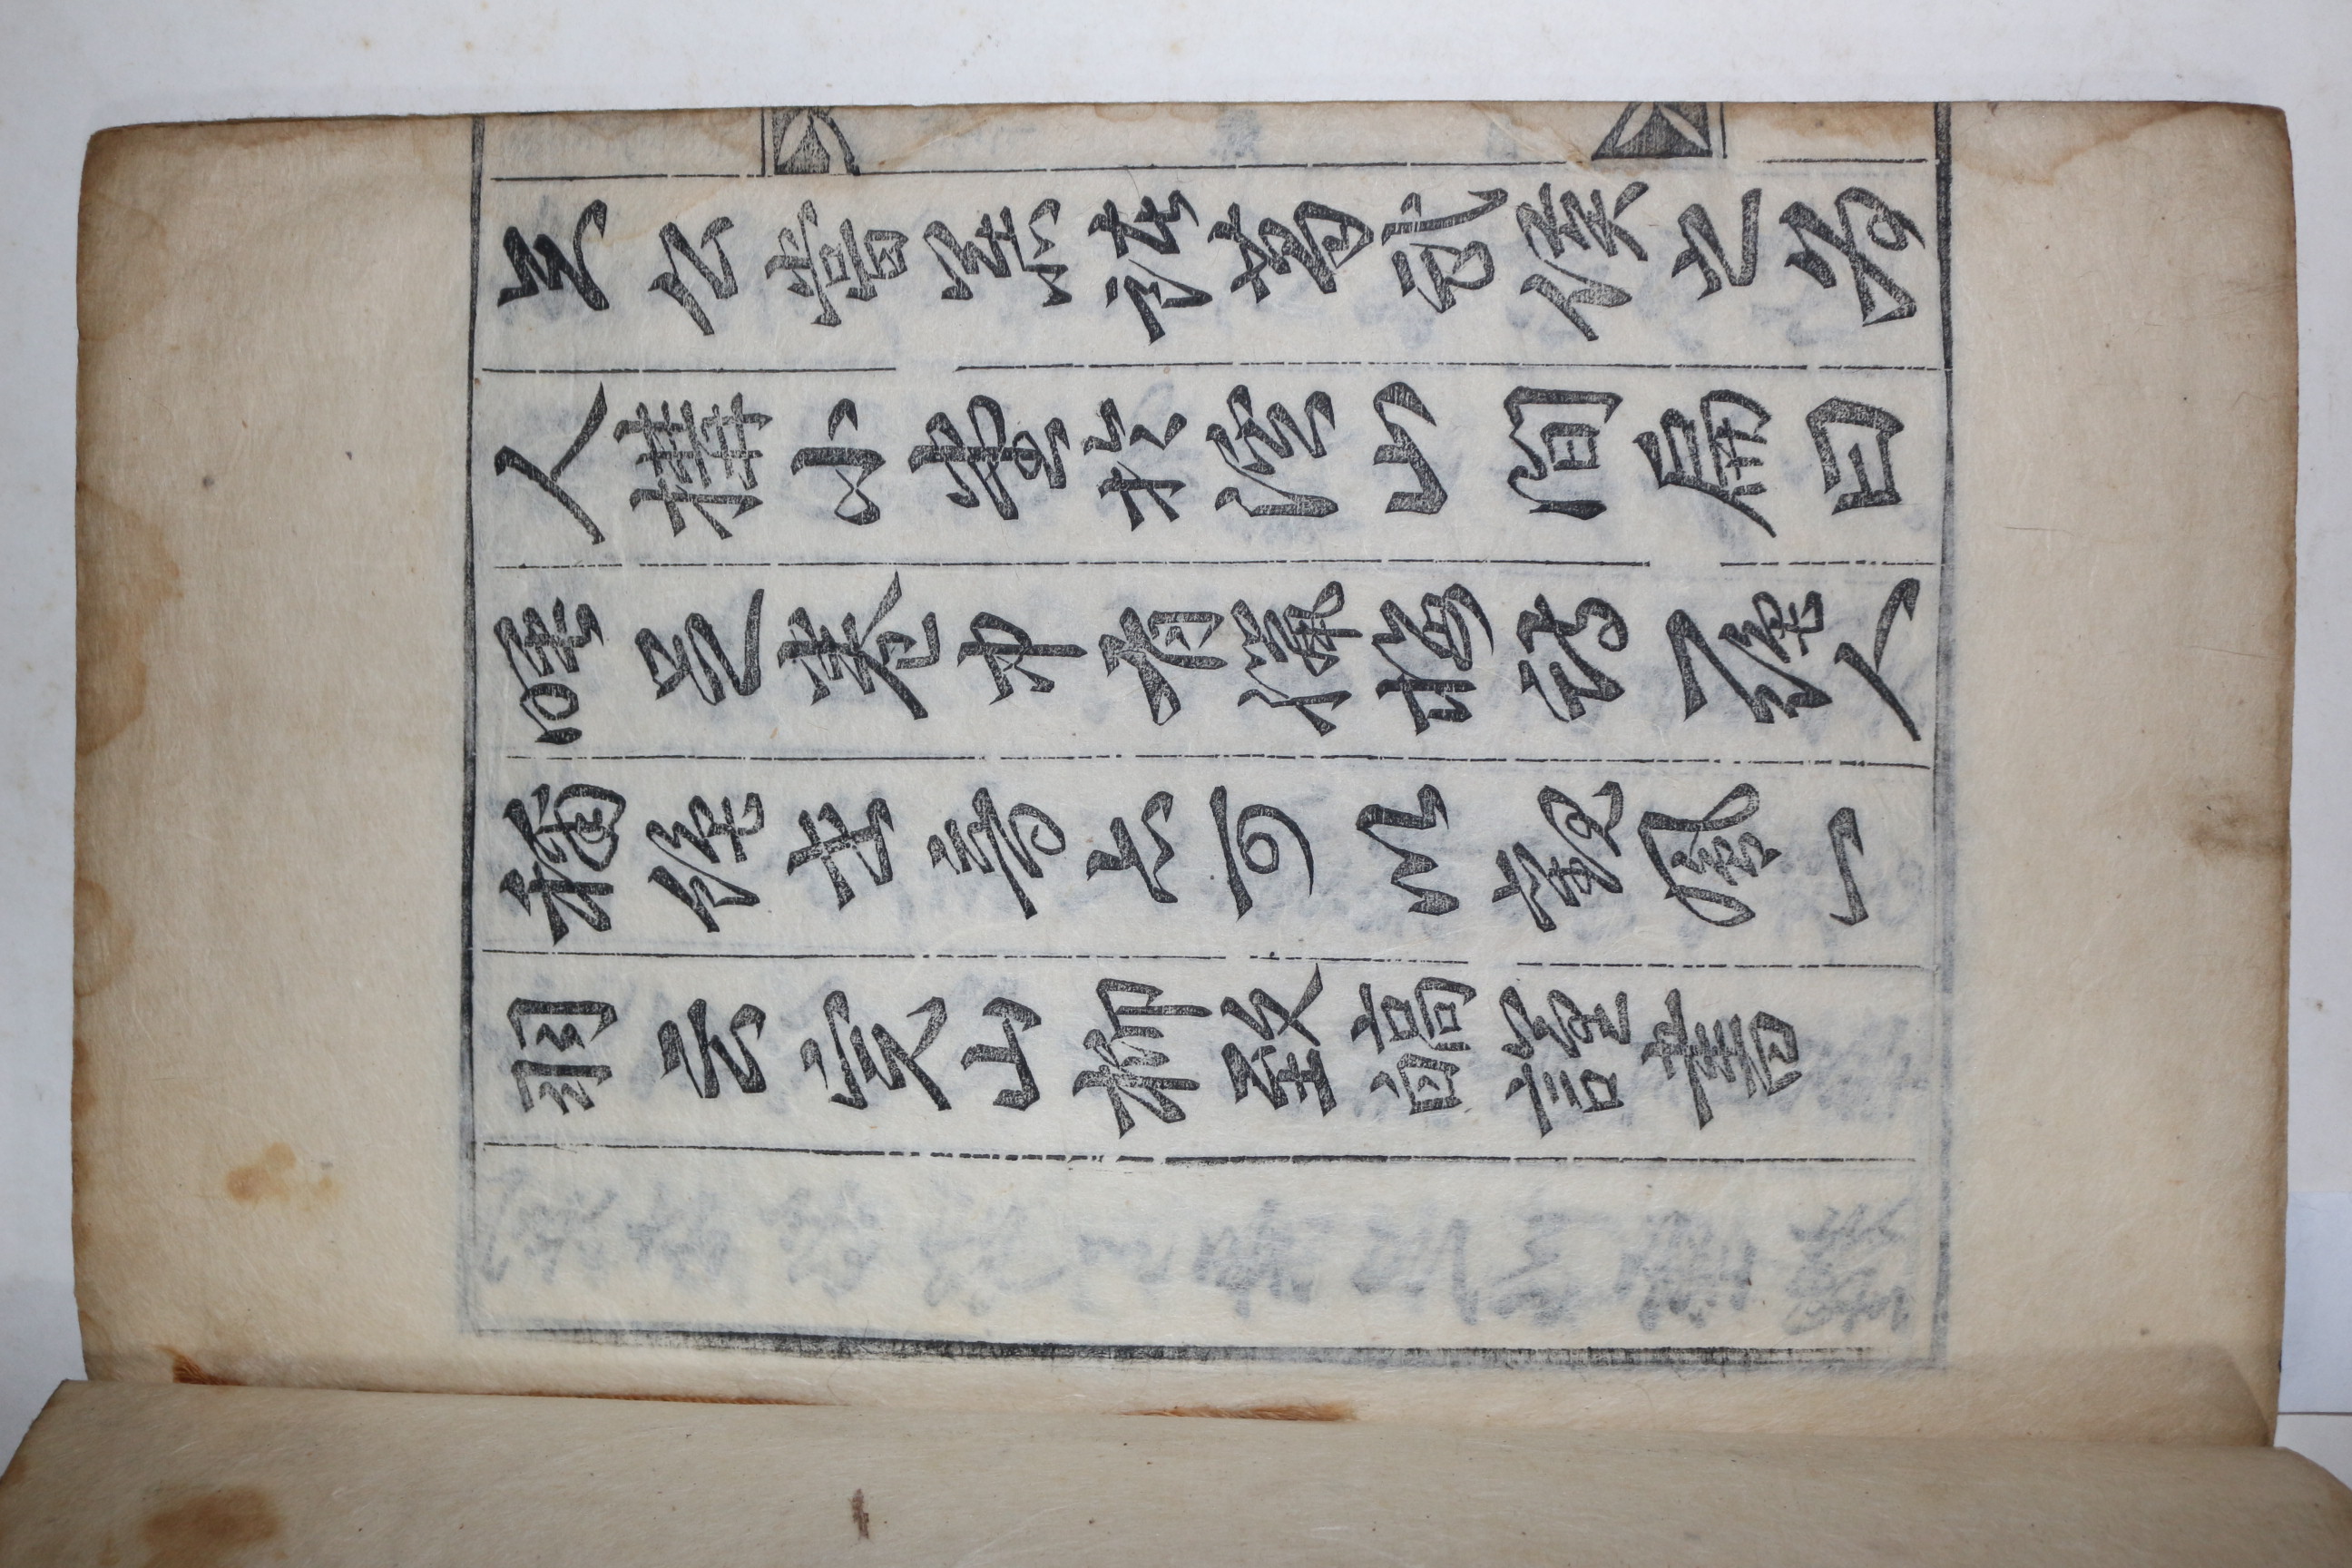 矣公嘗慕諸葛武侯之為
人搆小堂於溪山間扁曰
睡足卷中有臘梅詩一絶人
稱絶世音亦可以觀鳳一
羽云完山柳致皜謹書